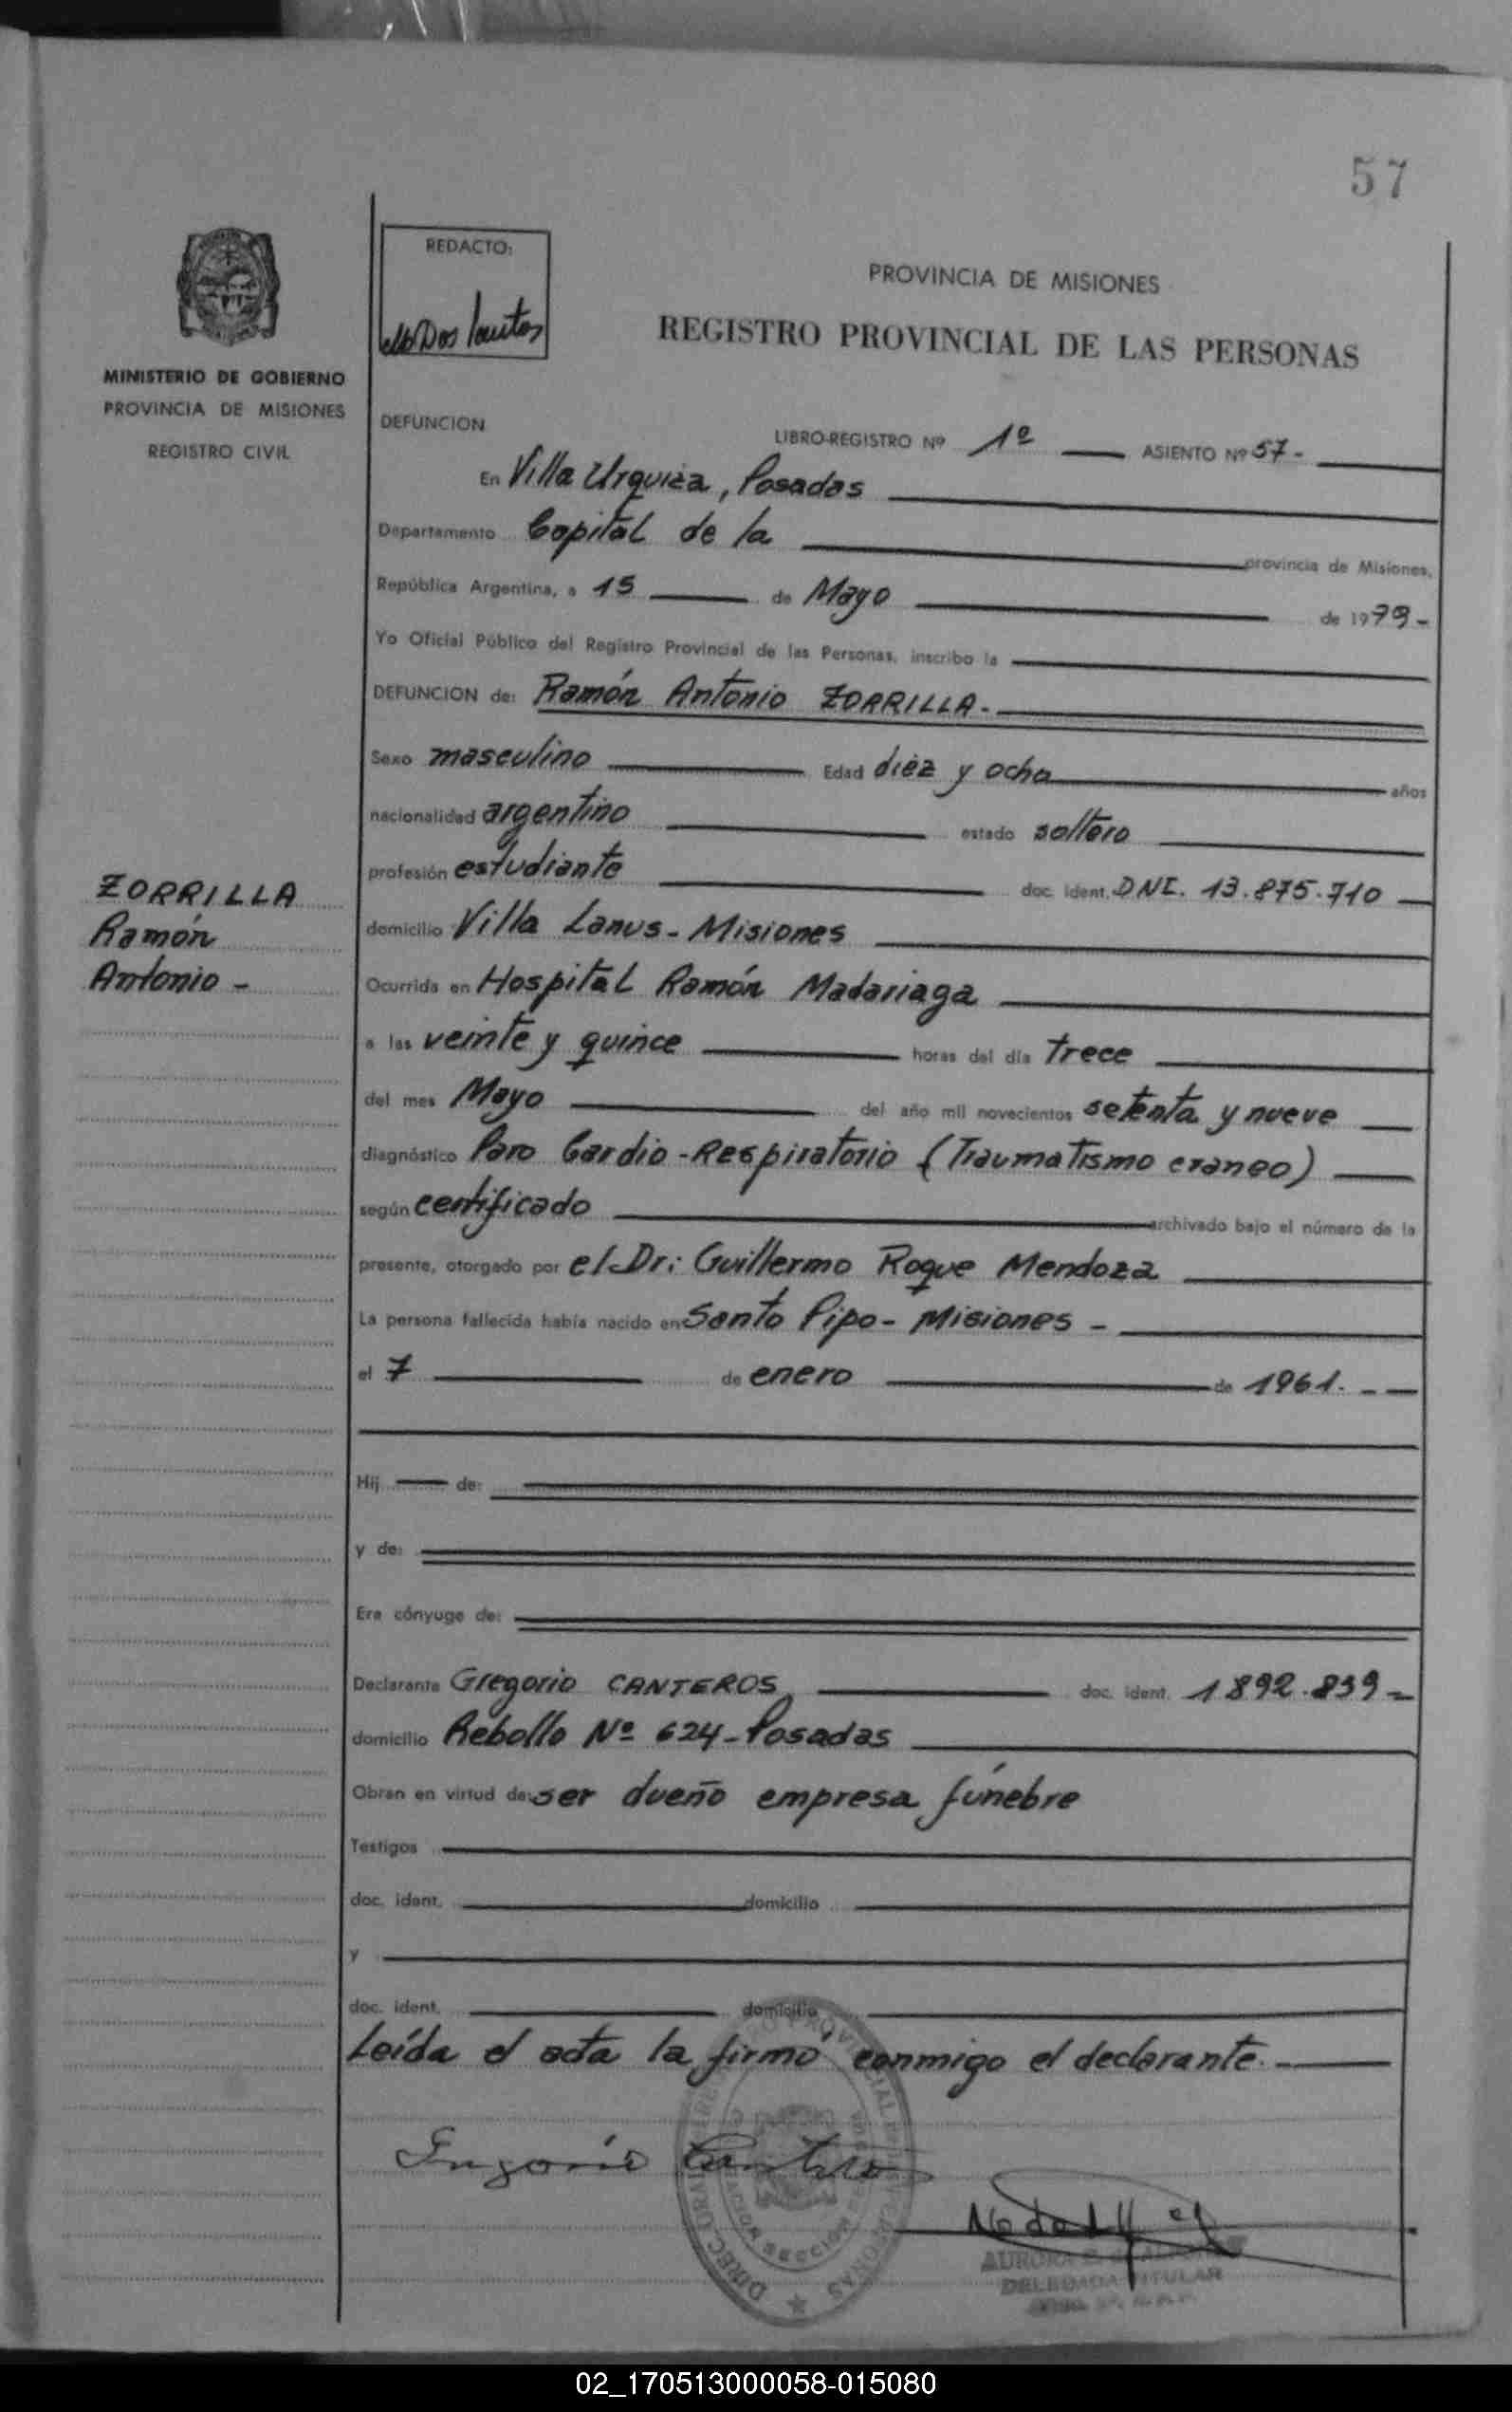 57
REDACTO:
Dos Santos
MINISTERIO DE GOBIERNO
PROVINCIA DE MISIONES
REGISTRO CIVIL
PROVINCIA DE MISIONES
REGISTRO PROVINCIAL DE LAS PERSONAS
DEFUNCION
LIBRO-REGISTRO Nº 1º ASIENTO Nº 57-
En Villa Urquiza, Posadas
Departamento Capital de la provincia de Misiones,
República Argentina, a 15 de Mayo de 1979-
Yo Oficial Público del Registro Provincial de las Personas, inscribo la
DEFUNCION de: Ramón Antonio ZORRILLA.-
Sexo masculino Edad diez y ocho años
nacionalidad argentino estado soltero
profesión estudiante doc. ident. DNI. 13.875.710
domicilio Villa Lanus - Misiones
Ocurrida en Hospital Ramón Madariaga
a las veinte y quince horas del día trece
del mes Mayo del año mil novecientos setenta y nueve
diagnóstico Paro Cardio-Respiratorio (Traumatismo craneo)
según certificado archivado bajo el número de la
presente, otorgado por el Dr: Guillermo Roque Mendoza
La persona fallecida había nacido en Santo Pipo - Misiones -
el 7 de enero de 1961. - -
Hij de:
y de:
Era cónyuge de:
Declarante Gregorio CANTEROS doc. ident. 1892.839-
domicilio Rebollo Nº 624 - Posadas
Obran en virtud de: ser dueño empresa fúnebre
Testigos
doc. ident. domicilio
y
doc. ident. domicilio
Leída el acta la firmó conmigo el declarante.-
ZORRILLA
Ramón
Antonio -
Gregorio Canteros
AURORA
DELEGADA TITULAR
02_170513000058-015080